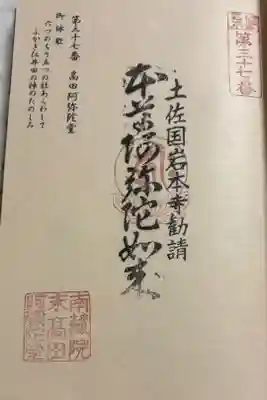 第三十七番
土佐国岩本寺勧請
本尊阿弥陀如来
第三十七番 高田阿弥陀堂
御詠歌
六つのちり五つの社あらわして
ふかき仁井田の神のたのしみ
南蔵院
末高田
阿弥陀堂